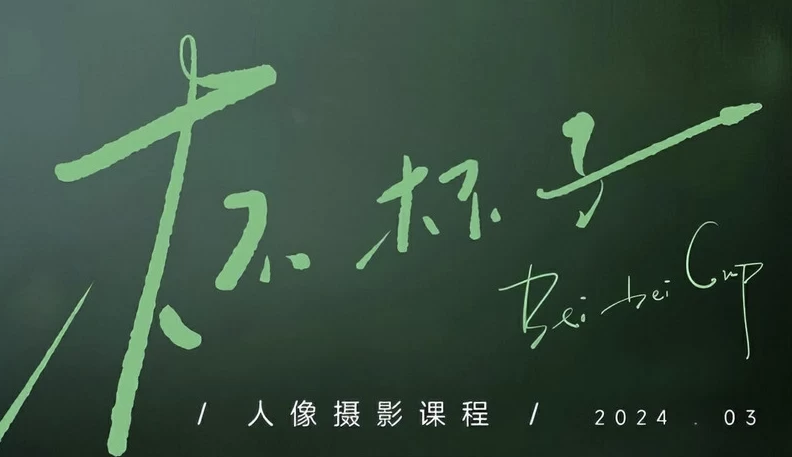 杯杯子
Bei bei Cup
/ 人像摄影课程 / 2024 . 03